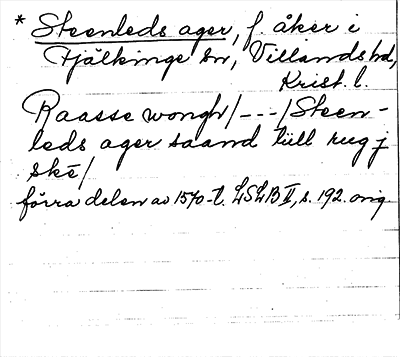 * Steenleds ager, f. åker i
Fjälkinge sn, Villands hd,
Krist. l.
Raasse wongh/---/Steen-
leds ager saand tüll rug j
ské/
förra delen av 1570-t. LSLB II, s. 192. orig